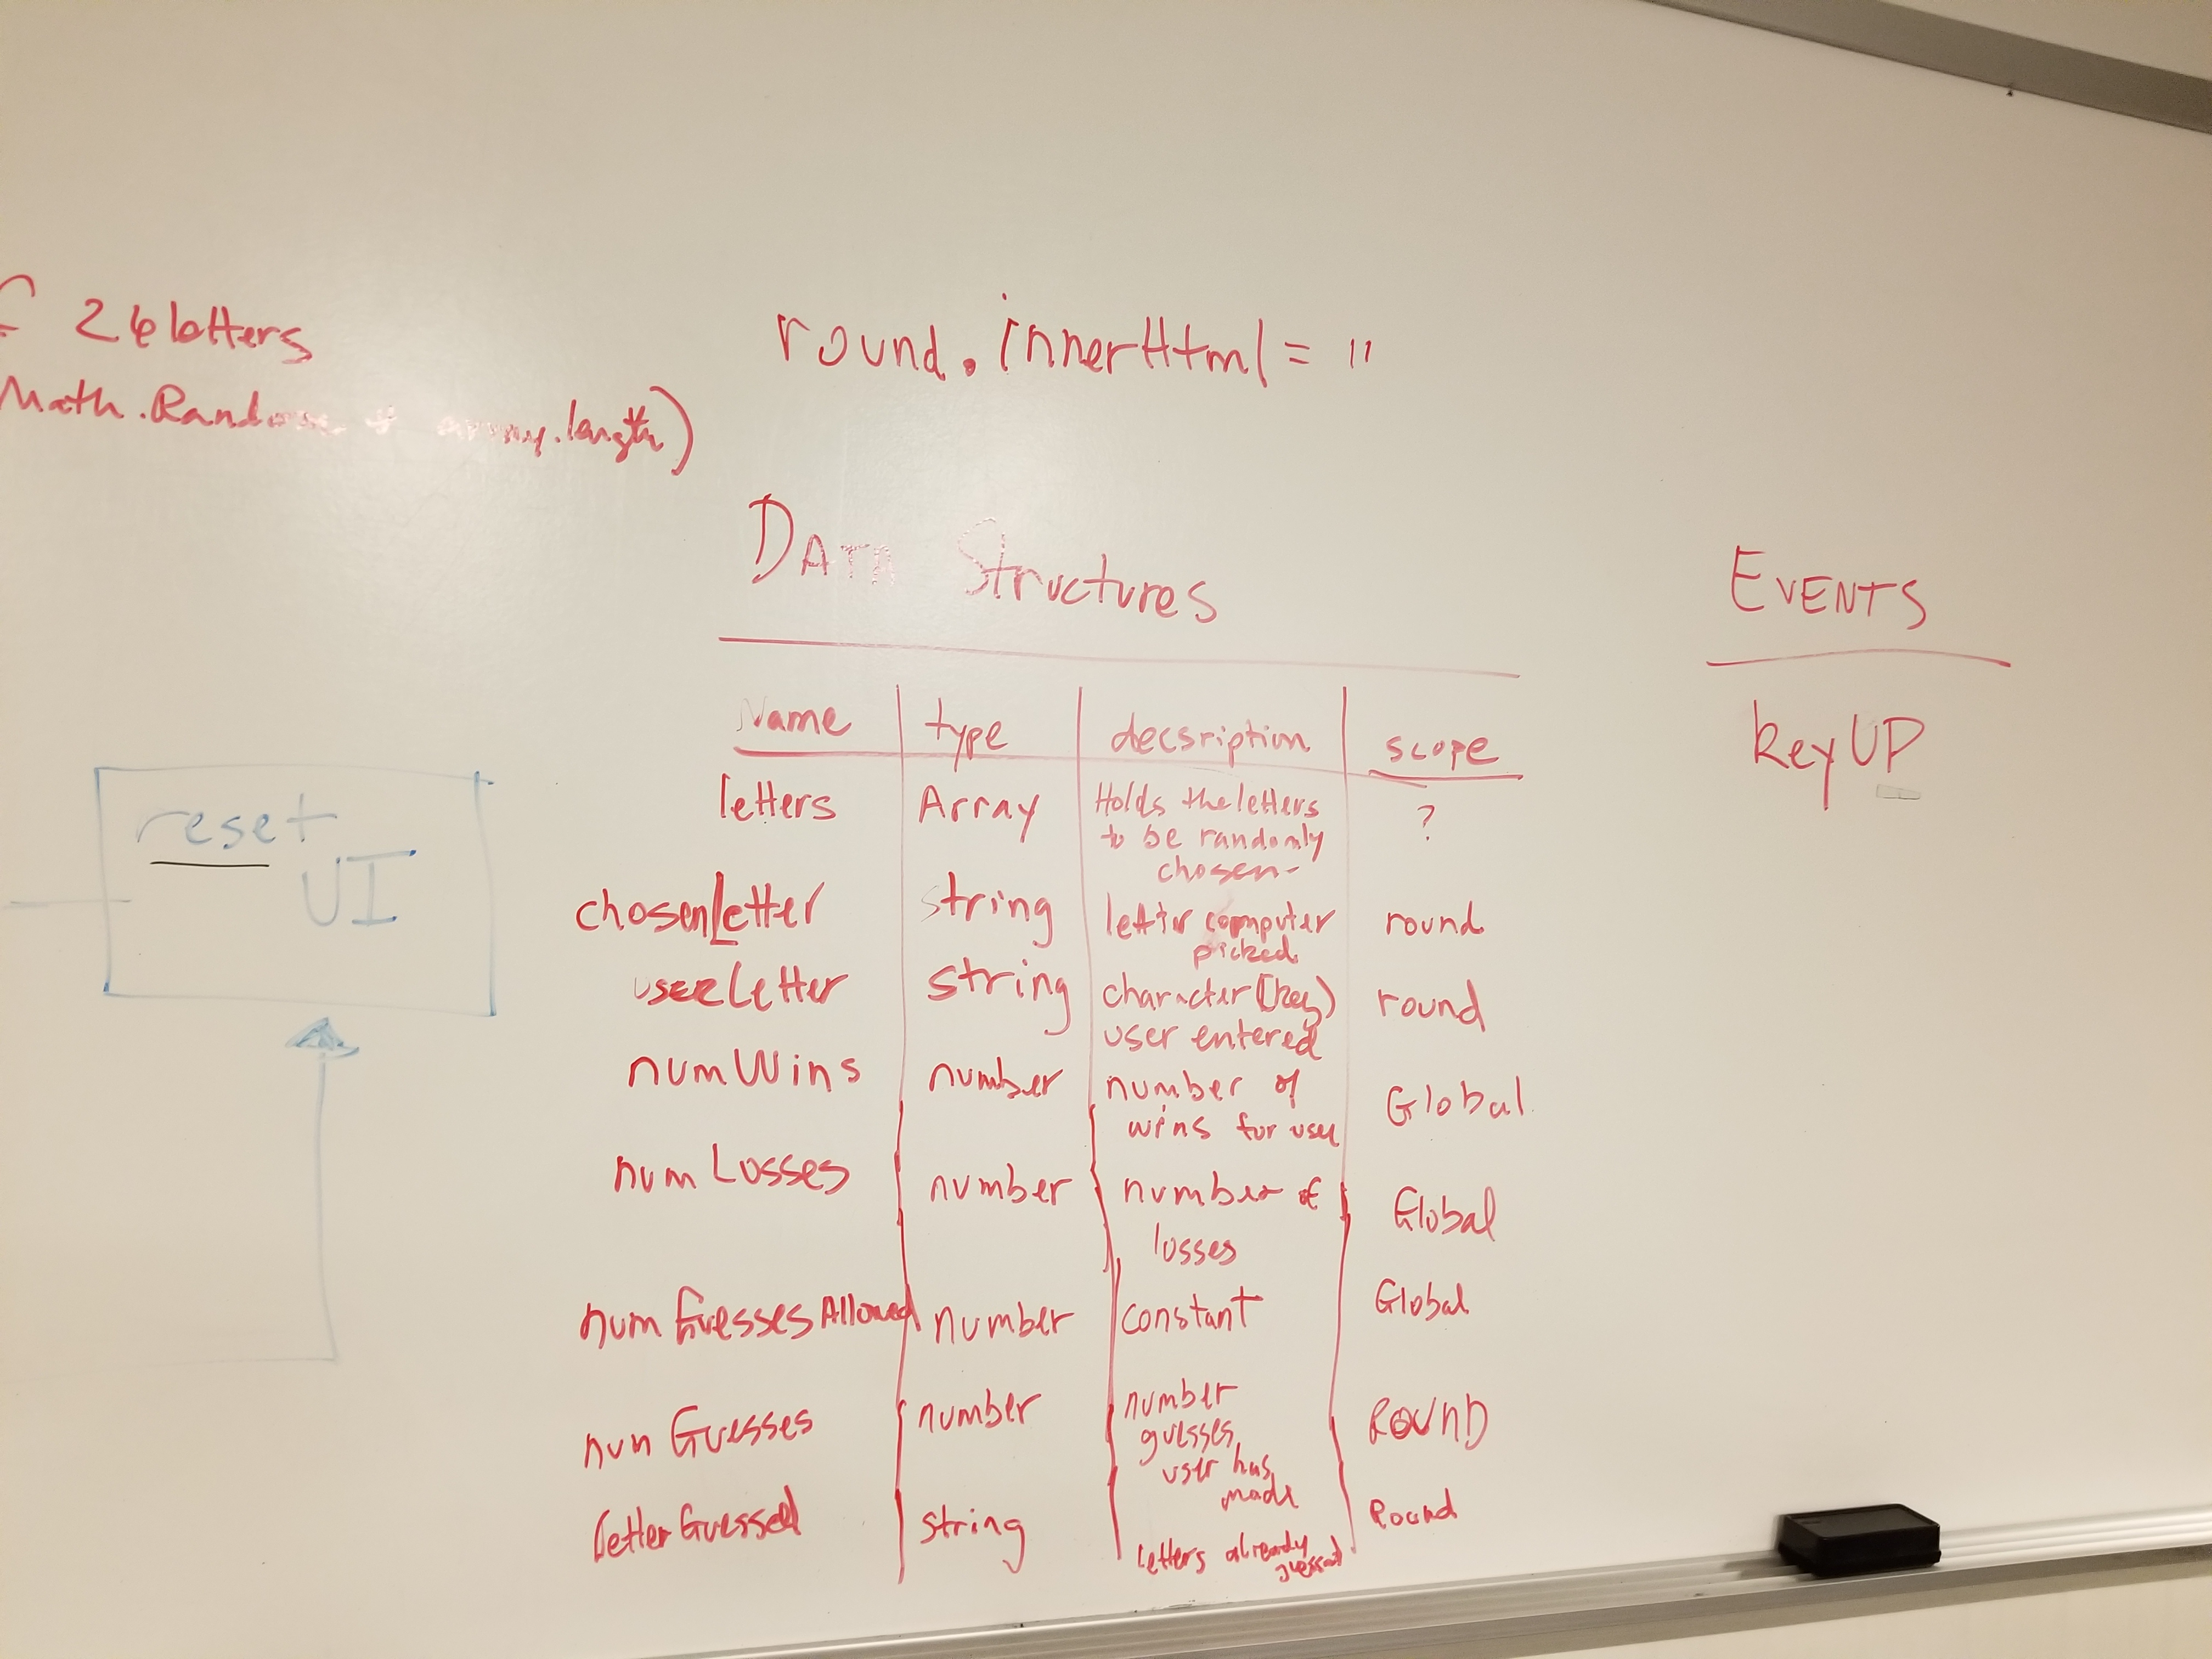 26 letters
Math.Random * array.length)
round.innerHtml = "
Data Structures
Name type decsription scope
letters Array Holds the letters ?
to be randomly
chosen
chosenLetter string letter computer round
picked
userLetter string character (key) round
user entered
numWins number number of Global
wins for user
numLosses number number of Global
losses
numGuessesAllowed number constant Global
numGuesses number number ROUND
guesses
user has
made
letterGuessed string letters already Round
guessed
EVENTS
keyUP
reset
UI